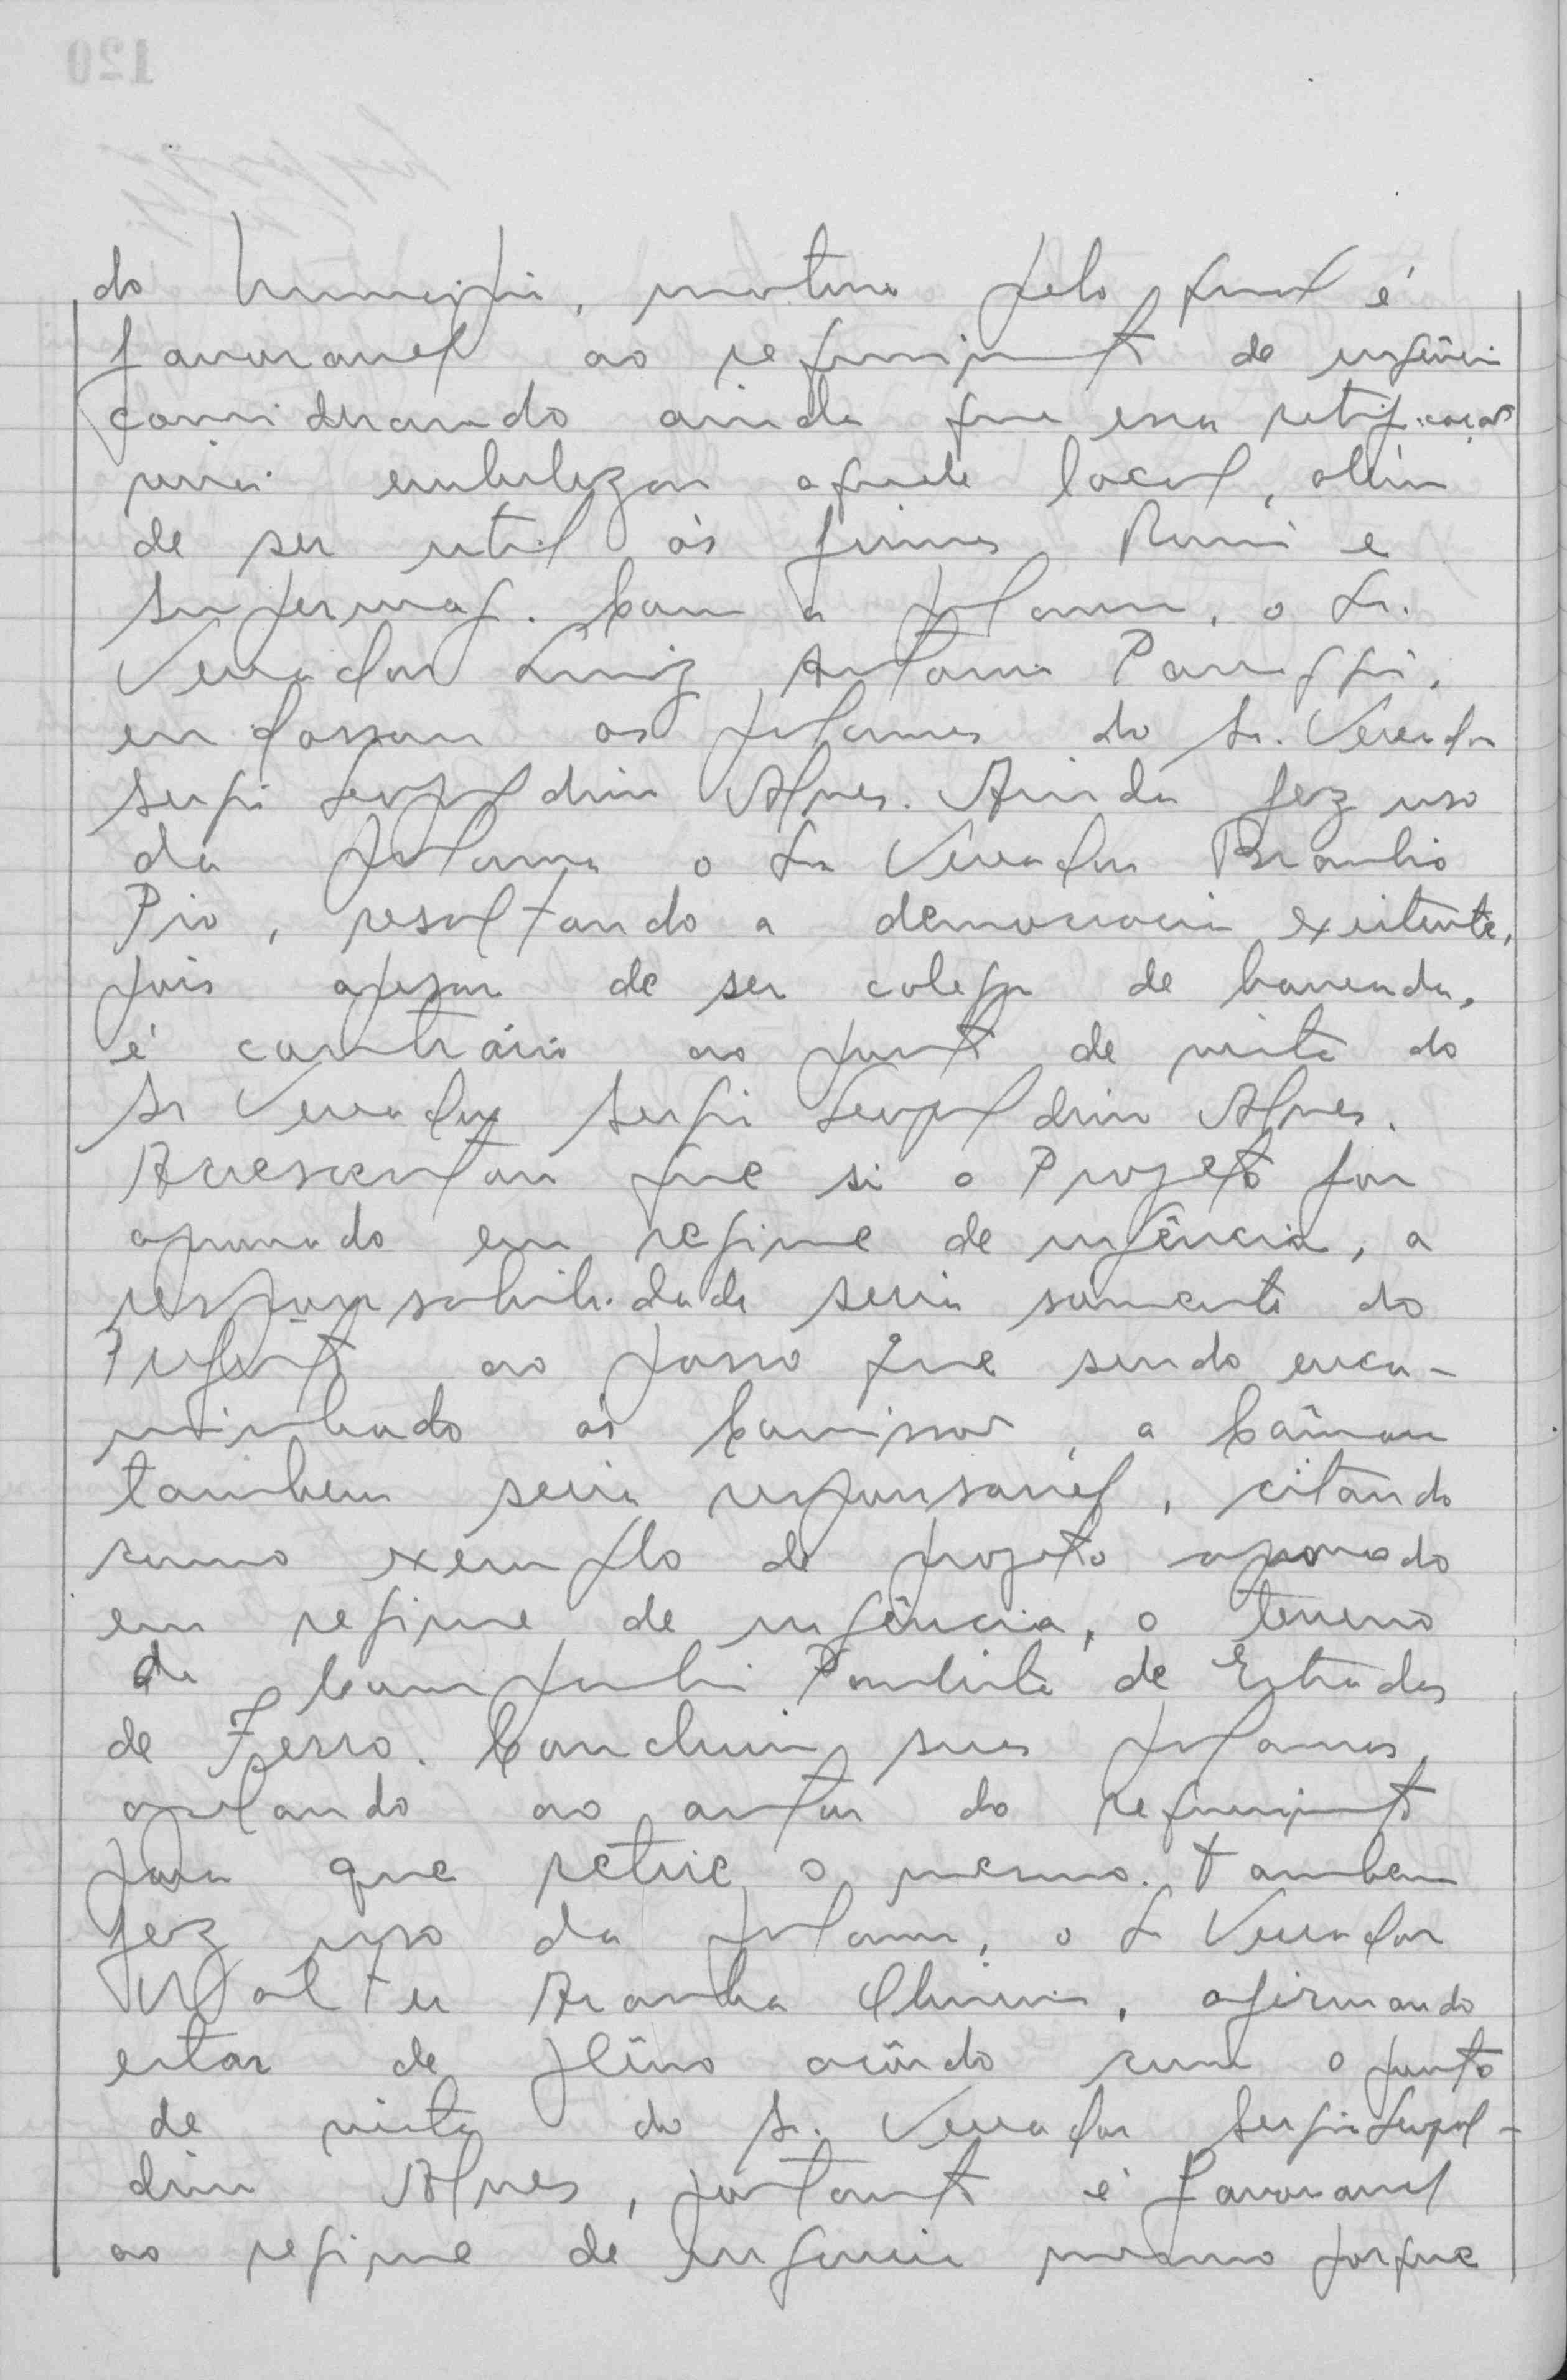 do Municipio, motivo pelo qual é
favoravel ao requerimento de urgência
considerando ainda que essa retificação
viria embelezar aquele local, além
de ser util às firmas Romi e
. Com a palavra, o Sr.
Vereador Luiz Antonio Panaggio,
endossou as palavras do Sr. Vereador
Sergio Leopoldino Alves. Ainda fez uso
da palavra o Sr Vereador Braulio
Pio, resaltando a democracia existente,
pois apesar de ser colega de bancada,
é contrário ao ponto de vista do
Sr Vereador Sergio Leopoldino Alves.
Acrescentou que si o Projeto for
aprovado em regime de urgência, a
responsabilidade seria somente do
Prefeito ao passo que sendo enca-
minhado às Comissões, a Câmara
tambem seria responsavel, citando
como exemplo de projeto aprovado
em regime de urgência, o terreno
da Companhia Paulista de Estradas
de Ferro. Concluiu suas palavras,
apelando ao autor do requerimento
para que retire o mesmo. Tambem
fez uso da palavra, o Sr Vereador
Walter Aranha , afirmando
estar de plêno acôrdo com o ponto
de vista do Sr. Vereador Sergio Leopol-
dino Alves, portanto é favoravel
ao regime de urgencia mesmo porque